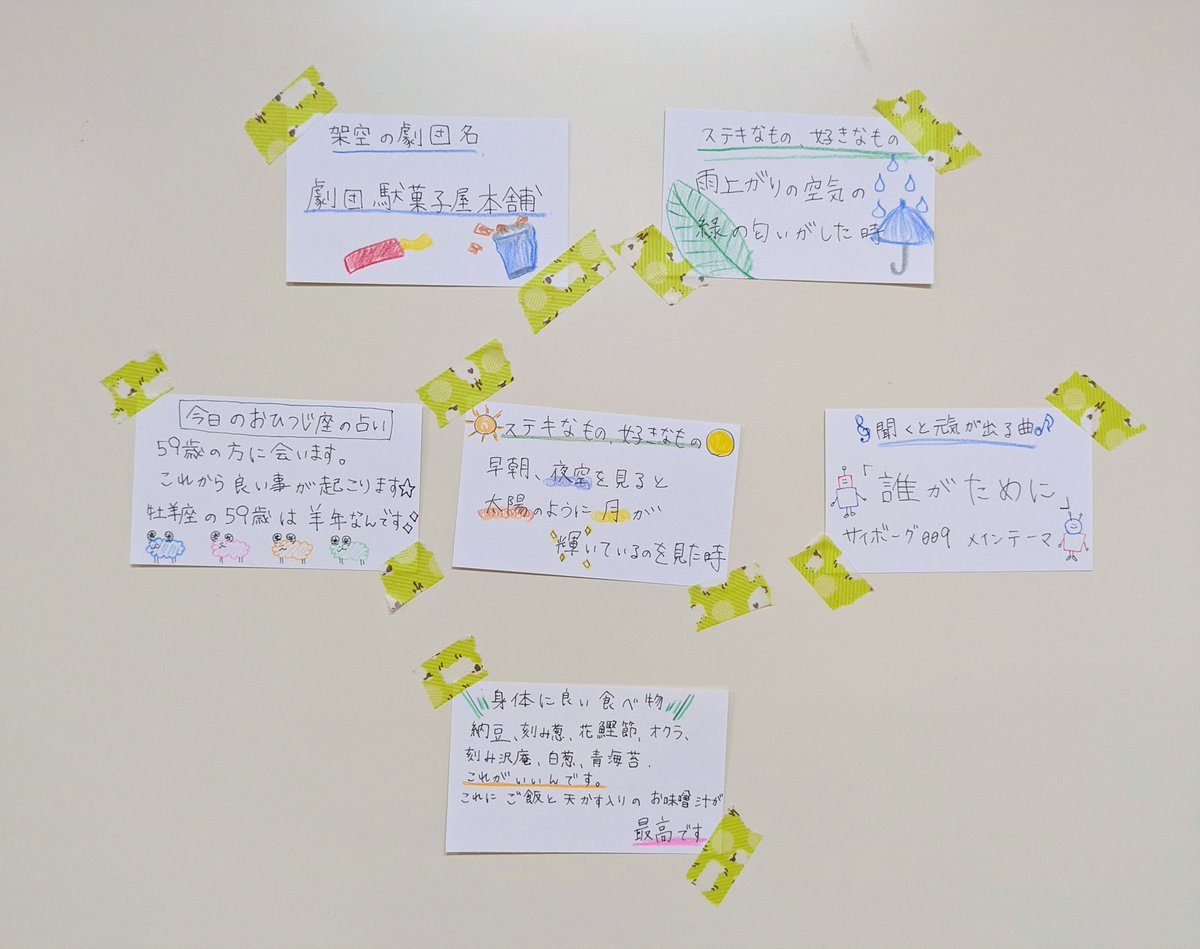 架空の劇団名
劇団駄菓子屋本舗
ステキなもの、好きなもの
雨上がりの空気の
緑の匂いがした時
今日のおひつじ座の占い
59歳の方に会います。
これから良い事が起こります☆
牡羊座の59歳は羊年なんです。
ステキなもの、好きなもの
早朝、夜空を見ると
太陽のように月が
輝いているのを見た時
聞くと元気が出る曲
「誰がために」
サイボーグ009 メインテーマ
身体に良い食べ物
納豆、刻み葱、花鰹節、オクラ、
刻み沢庵、白葱、青海苔.
これがいいんです。
これにご飯と天かす入りのお味噌汁が
最高です